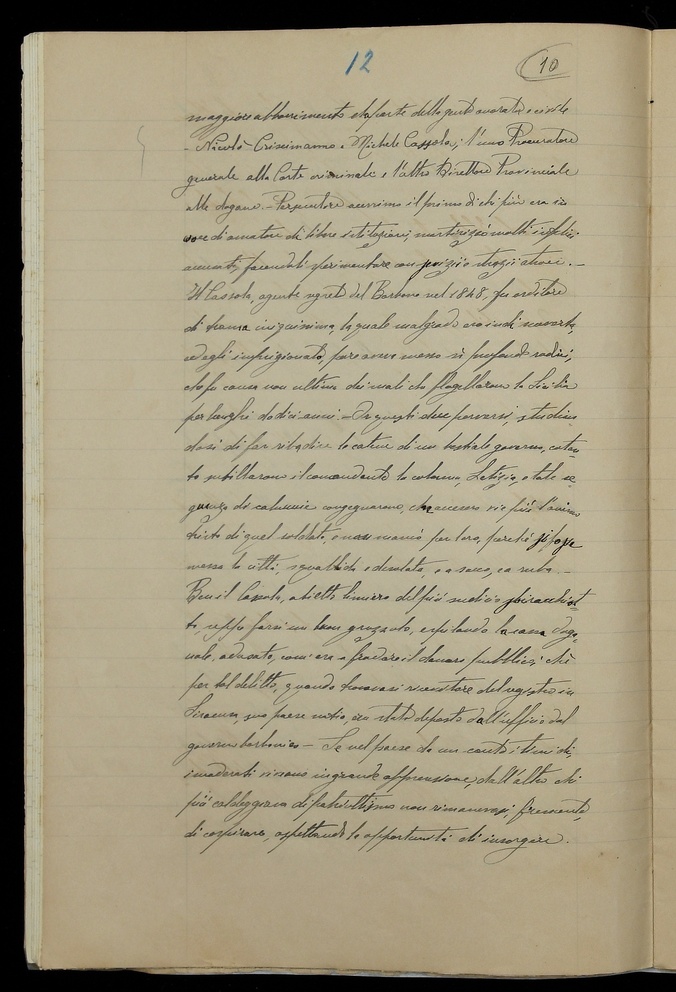 12
10
maggiore abborrimento da parte della gente onorata e civile
- Nicolò Crisimanno e Michele Cassola; l'uno Procuratore
generale alla Corte criminale e l'altro Direttore Provinciale
alle dogane. - Persecutore il primo di chi più era in
voce di amatore di libere istituzioni, martirizzò molti infelici
facendoli sperimentare atroci. -
Il Cassola, agente segreto del Borbone nel 1848, fu orditore
di trama iniquissima, la quale malgrado scoverta,
ed egli imprigionato, pure avea messo sì profonde radici,
che fu causa non ultima dei mali che flagellarono la Sicilia
per lunghi dodici anni. - Or questi due perversi, studian
dosi di far ribadire le catene di un bestiale governo, cotan
to instillarono il comandante la colonna, Letizia, e tale se
quenza di calunnie congegnarono, che l'animo
tristo di quel soldato, e non mancò per loro, perchè si fosse
messa la città, squallida e desolata, a sacco, ed a ruba. -
Ben il Cassola, abietto del più sudicio
to, seppe farsi un buon gruzzolo, espilando la cassa doga
nale, adusato, com'era a frodare il danaro pubblico; chè
per tal delitto, quando trovavasi ricevitore del registro in
Siracusa, suo paese natio, era stato deposto dall'ufficio dal
governo borbonico - Se nel paese da un canto i timidi,
i moderati vivono in grande apprensione, dall'altro chi
più caldeggiava di patriottismo non rimanevasi, fremente,
di cospirare, aspettando la opportunità di insorgere.